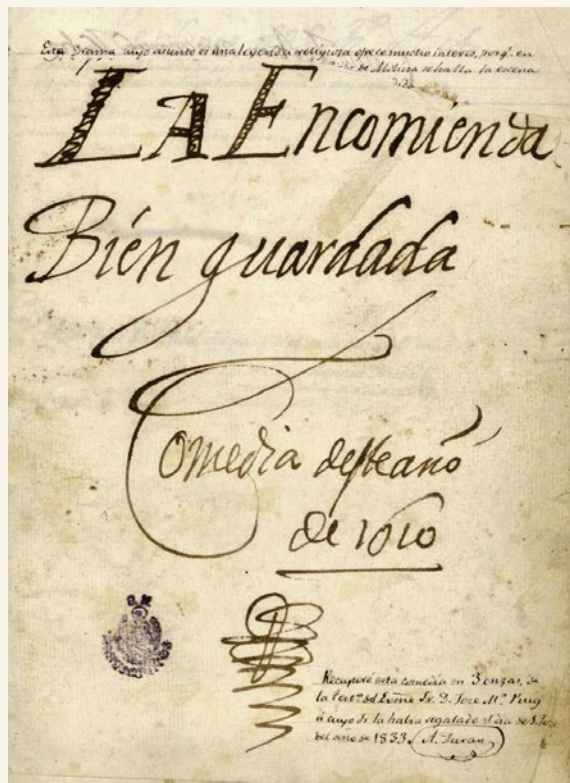 Este drama cuyo asunto es una leyenda religiosa ofrece mucho interes, porq.e en
de Molina se halla la escena
LA Encomienda
Bién guardada
Comedia desteaño
de 1610
Recuperé esta comedia en 3 onzas, de
la test.ª del Exmo Sr. D. Jose M.ª Puig
á cuyo Sr. la habia regalado el dia de S. Jose
del año de 1833. A. Duran